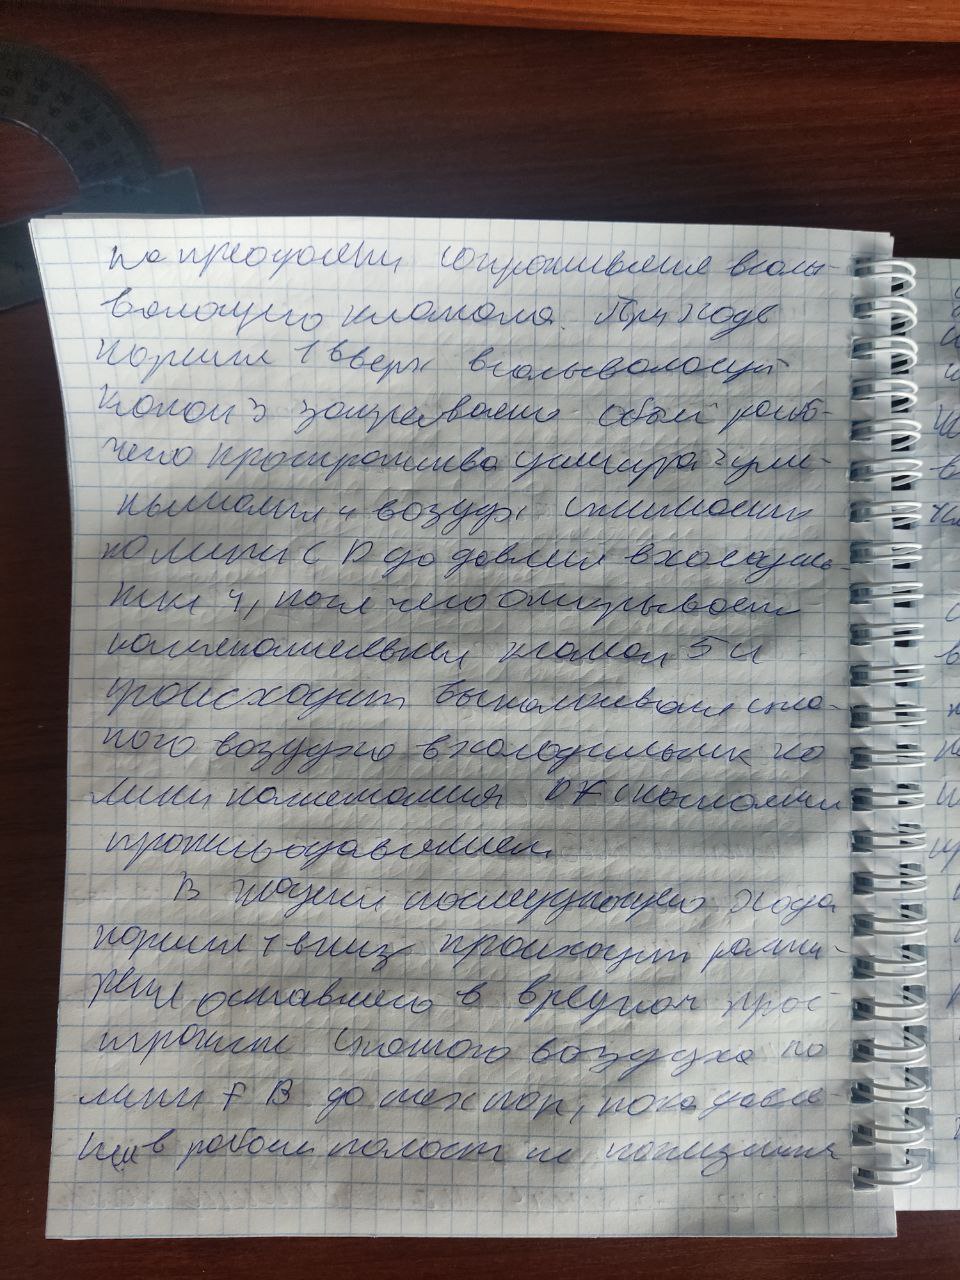 на преодолени сопротивление всасы-
вающего клапана. При ходе
поршня 1 вверх всасывающий
клапан 3 закрывает объем рабо-
чего пространства цилиндра
и воздух сжимаети
по лини С D до давлия в холодиль-
нике 4, после чего открывает
нагнетательный клапан 5 и
происходит выталкивание сжа-
того воздуха в холодильник по
лини нагнетания D F с постоянным
противодавлением.
В течении последующего хода
поршня 1 вниз происходит расши-
рение оставшего в вредном прос-
транстве сжатого воздуха по
лини F B до тех пор, пока давле-
ние в рабочей полости не понизиться